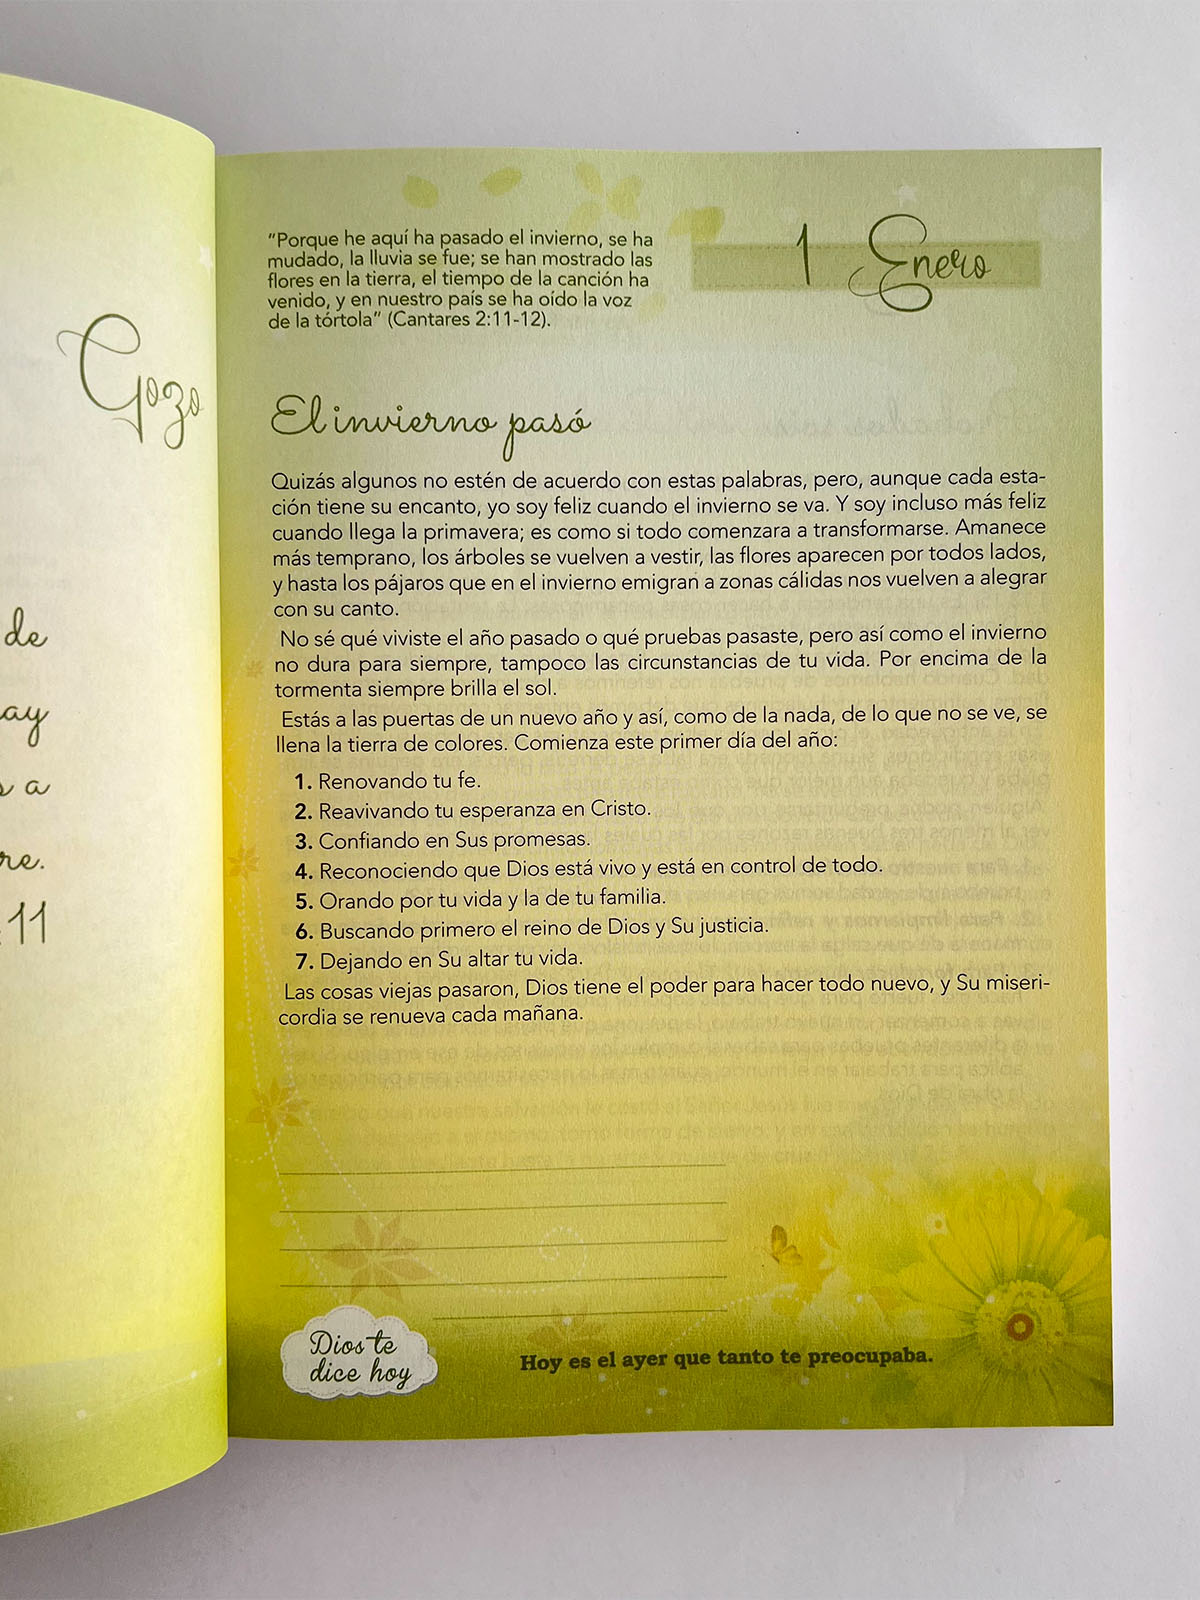 Gozo
de
ay
s a
re.
:11
"Porque he aquí ha pasado el invierno, se ha
mudado, la lluvia se fue; se han mostrado las
flores en la tierra, el tiempo de la canción ha
venido, y en nuestro país se ha oído la voz
de la tórtola" (Cantares 2:11-12).
1 Enero
El invierno pasó
Quizás algunos no estén de acuerdo con estas palabras, pero, aunque cada esta-
ción tiene su encanto, yo soy feliz cuando el invierno se va. Y soy incluso más feliz
cuando llega la primavera; es como si todo comenzara a transformarse. Amanece
más temprano, los árboles se vuelven a vestir, las flores aparecen por todos lados,
y hasta los pájaros que en el invierno emigran a zonas cálidas nos vuelven a alegrar
con su canto.
No sé qué viviste el año pasado o qué pruebas pasaste, pero así como el invierno
no dura para siempre, tampoco las circunstancias de tu vida. Por encima de la
tormenta siempre brilla el sol.
Estás a las puertas de un nuevo año y así, como de la nada, de lo que no se ve, se
llena la tierra de colores. Comienza este primer día del año:
1. Renovando tu fe.
2. Reavivando tu esperanza en Cristo.
3. Confiando en Sus promesas.
4. Reconociendo que Dios está vivo y está en control de todo.
5. Orando por tu vida y la de tu familia.
6. Buscando primero el reino de Dios y Su justicia.
7. Dejando en Su altar tu vida.
Las cosas viejas pasaron, Dios tiene el poder para hacer todo nuevo, y Su miseri-
cordia se renueva cada mañana.
Dios te
dice hoy
Hoy es el ayer que tanto te preocupaba.